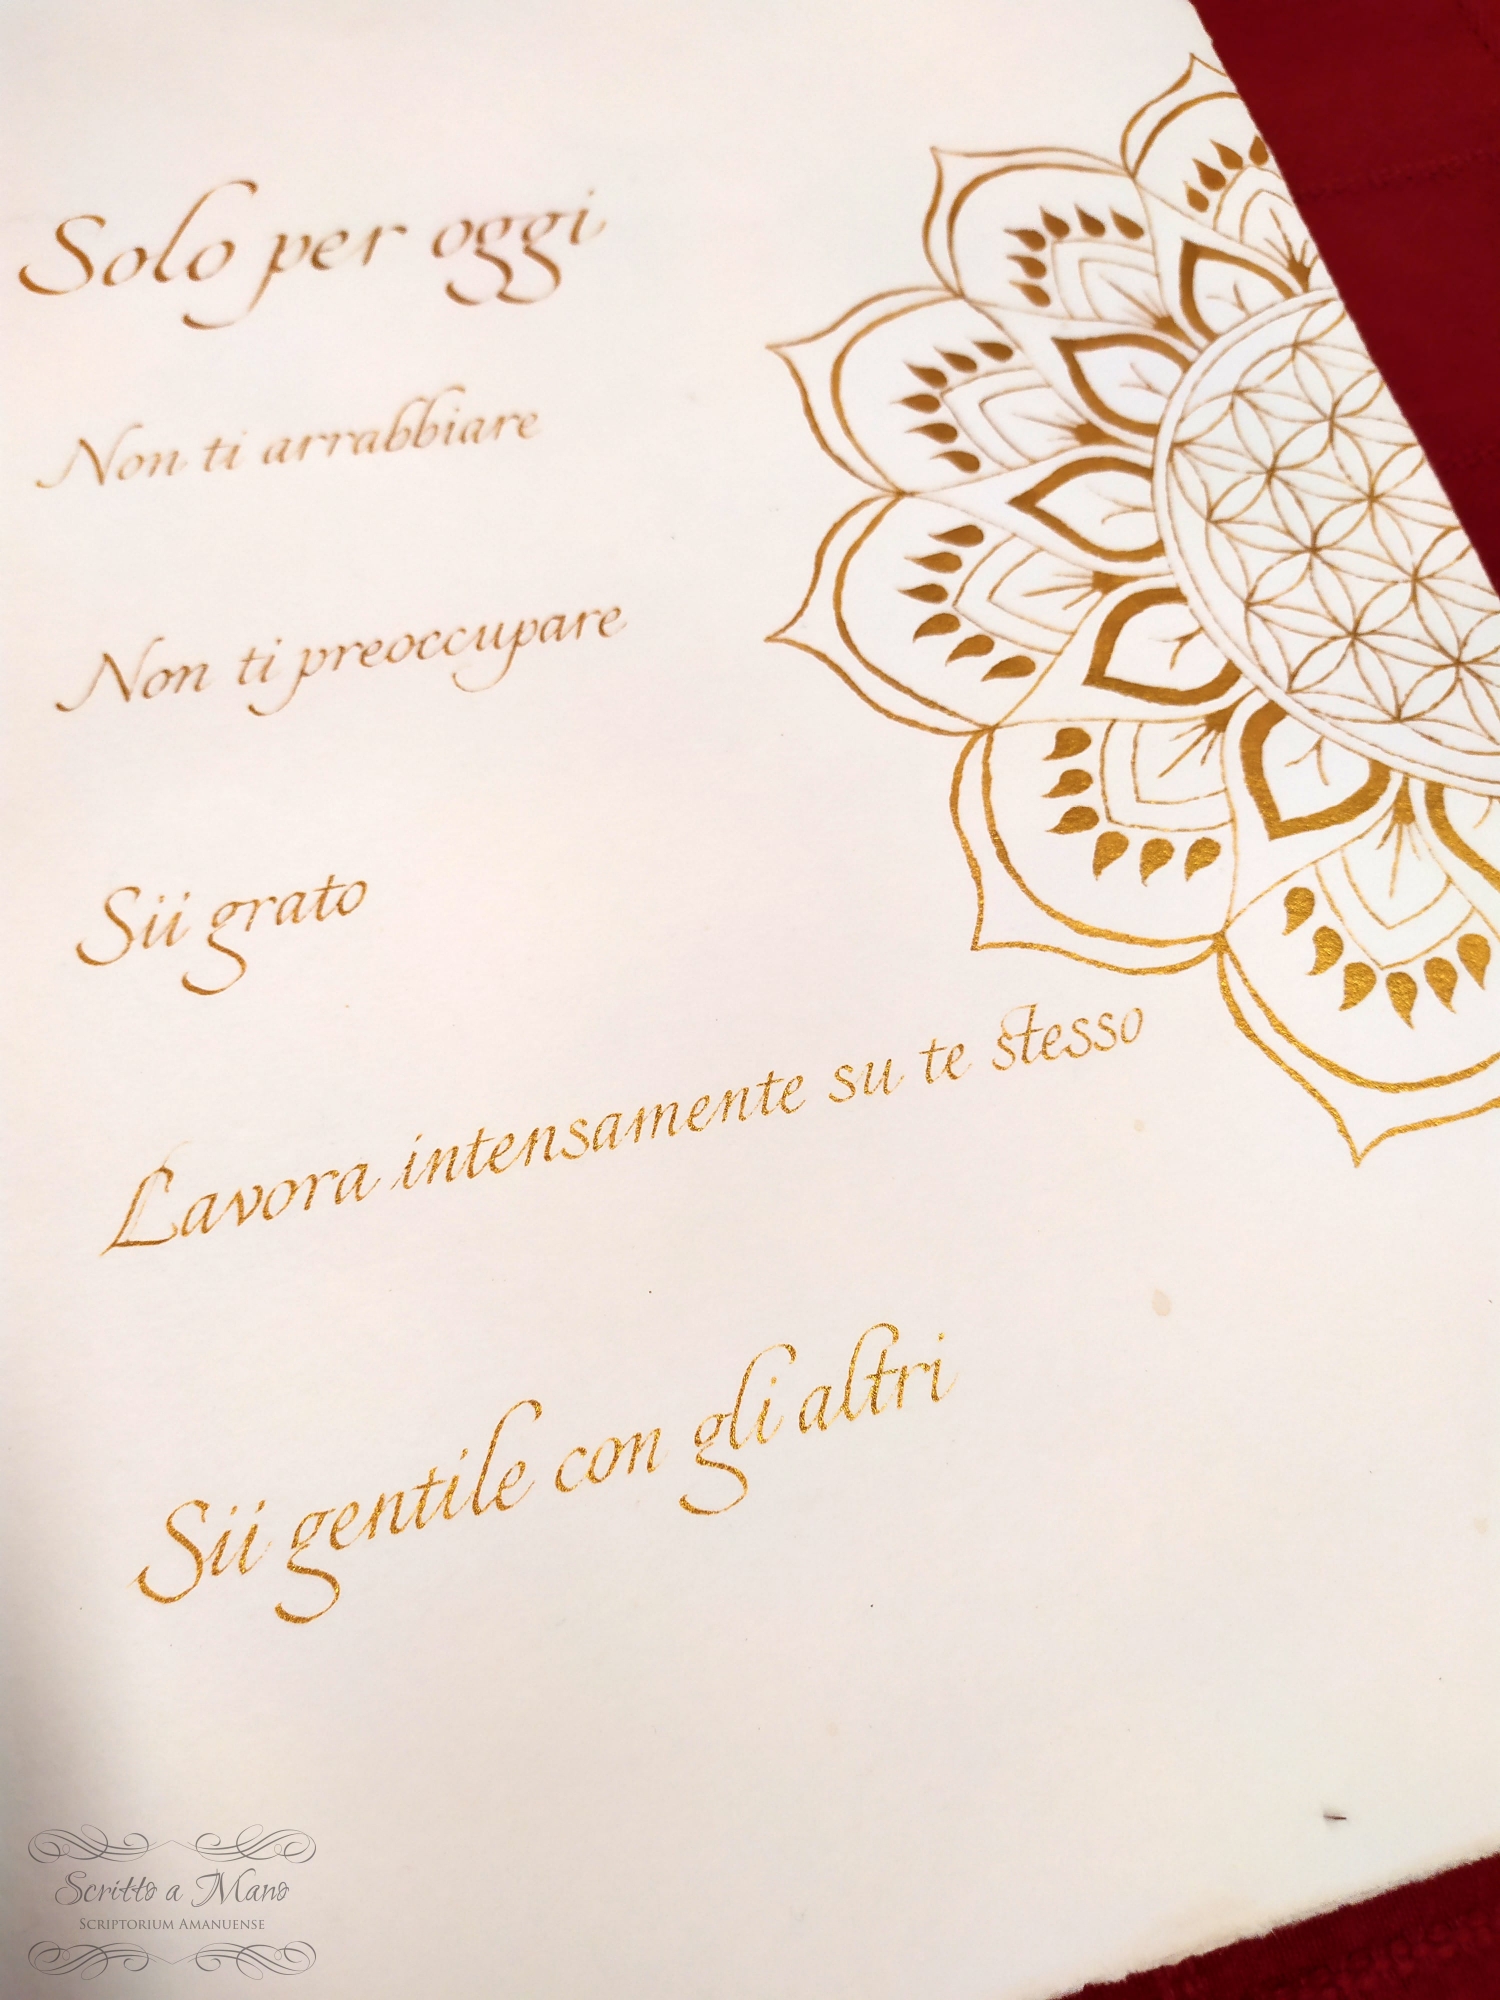 Solo per oggi
Non ti arrabbiare
Non ti preoccupare
Sii grato
Lavora intensamente su te stesso
Sii gentile con gli altri
Scritto a Mano
Scriptorium Amanuense